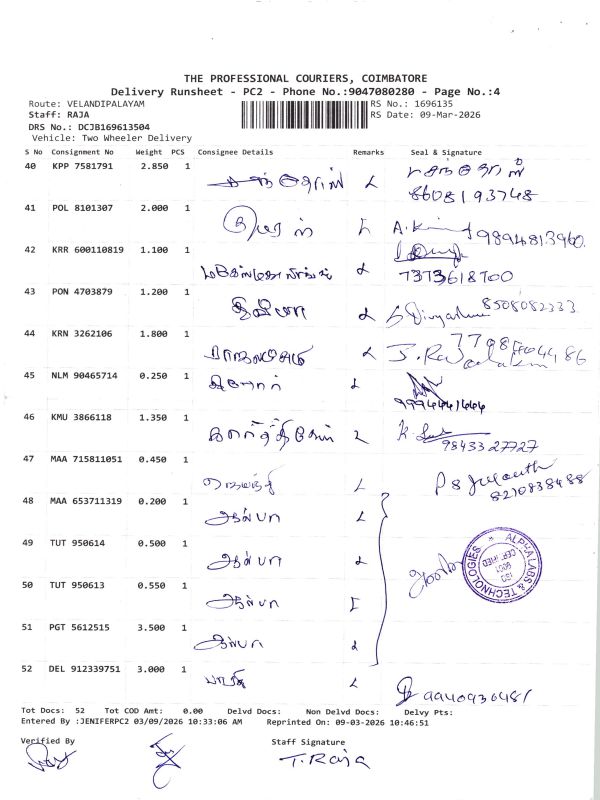 THE PROFESSIONAL COURIERS, COIMBATORE
Delivery Runsheet - PC2 - Phone No.:9047080280 - Page No.:4
Route: VELANDIPALAYAM RS No.: 1696135
Staff: RAJA RS Date: 09-Mar-2026
DRS No.: DCJB169613504
Vehicle: Two Wheeler Delivery
S No Consignment No Weight PCS Consignee Details Remarks Seal & Signature
40 KPP 7581791 2.850 1
8608193748
41 POL 8101307 2.000 1
9894813960
42 KRR 600110819 1.100 1
7373618700
43 PON 4703879 1.200 1 திவ்யா 8508082333
44 KRN 3262106 1.800 1
45 NLM 90465714 0.250 1
46 KMU 3866118 1.350 1 கார்த்திகேயன்
9843327727
47 MAA 715811051 0.450 1 ஜெயந்தி
8210838488
48 MAA 653711319 0.200 1 அல்பா
49 TUT 950614 0.500 1 அல்பா
ALPHA LABS & TECHNOLOGIES
ISO 9001 CERTIFIED
50 TUT 950613 0.550 1 அல்பா
51 PGT 5612515 3.500 1 அல்பா
52 DEL 912339751 3.000 1 பாரதி
9940930481
Tot Docs: 52 Tot COD Amt: 0.00 Delvd Docs: Non Delvd Docs: Delvy Pts:
Entered By :JENIFERPC2 03/09/2026 10:33:06 AM Reprinted On: 09-03-2026 10:46:51
Verified By Staff Signature
T. Raja